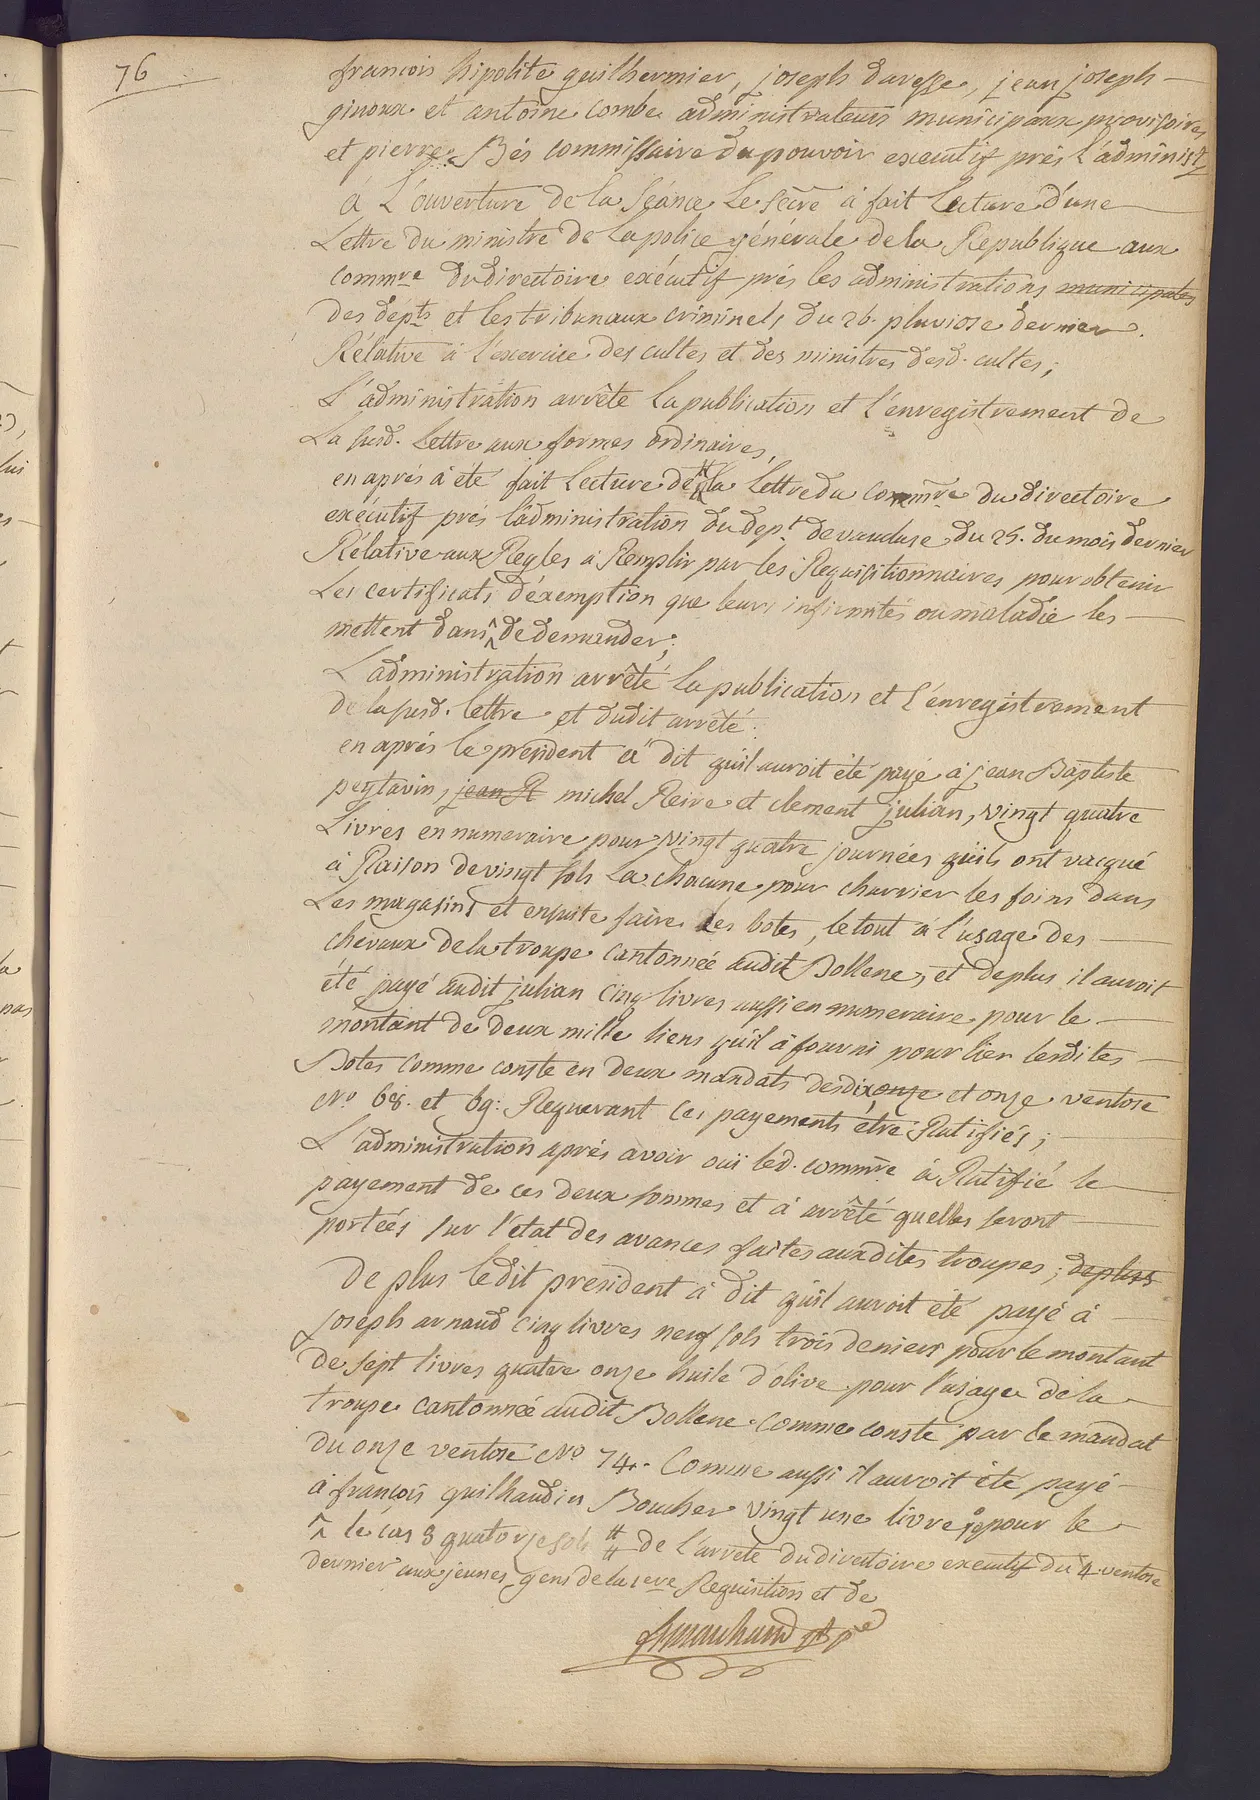 76
francois hipolite guilhermier, joseph davesse, jean joseph
ginoux et antoine combe administrateurs municipaux provisoires
et pierre Bés commissaire du pouvoir executif prés l'administ
à l'ouverture de la séance le secre à fait lecture d'une
Lettre du ministre de la police générale de la Republique aux
commre du directoire exécutif prés les administrations municipales
des dépts et les tribunaux criminels du 26. pluviose dernier.
Rélative à l'exercice des cultes et des ministres desd. cultes;
L'administration arrête la publication et l'enregistrement de
La susd. Lettre aux formes ordinaires,
en aprés à été fait lecture de la lettre du commre du directoire
exécutif prés l'administration du dept de vaucluse du 25. du mois dernier
Rélative aux Regles à Remplir par les Requisitionnaires pour obtenir
Les certificats d'éxemption que leurs infirmités ou maladie les
mettent dans de demander;
L'administration arrêté la publication et l'enregistrement
de la susd. lettre et dudit arrêté.
en aprés le president à dit qu'il auroit été payé à jean Baptiste
peytavin, jean R michel Reive et clement julian, vingt quatre
Livres en numeraire pour vingt quatre journées qu'ils ont vacqué
à Raison de vingt sols la chacune pour charrier les foins dans
Les magasins et ensuite faire les botes, le tout à l'usage des
chevaux de la troupe cantonnée audit Bollene, et de plus il auroit
été payé audit julian cinq livres aussi en numeraire pour le
montant de deux mille liens qu'il à fourni pour lier lesdites
Botes comme conste en deux mandats desdix onze et onze ventose
No 68. et 69: Requerant ces payements étre Ratifiés;
L'administration aprés avoir ouï led. commre à Ratifié le
payement de ces deux sommes et à arrêté quelles seront
portées sur l'état des avances faites auxdites troupes; de plus
De plus ledit president à dit qu'il auroit été payé à
joseph arnaud cinq livres neuf sols trois deniers pour le montant
de sept livres quatre onze huile d'olive pour l'usage de la
troupe cantonnée audit Bollene comme conste par le mandat
du onze ventose No 74. Comme aussi il auroit été payé
à françois guilhaudin Boucher vingt une livre pour le
^ le cas 8 quatorze sols # de l'arrete du directoire executif du 4 ventose
dernier aux jeunes gens de la 1ere Requisition et de